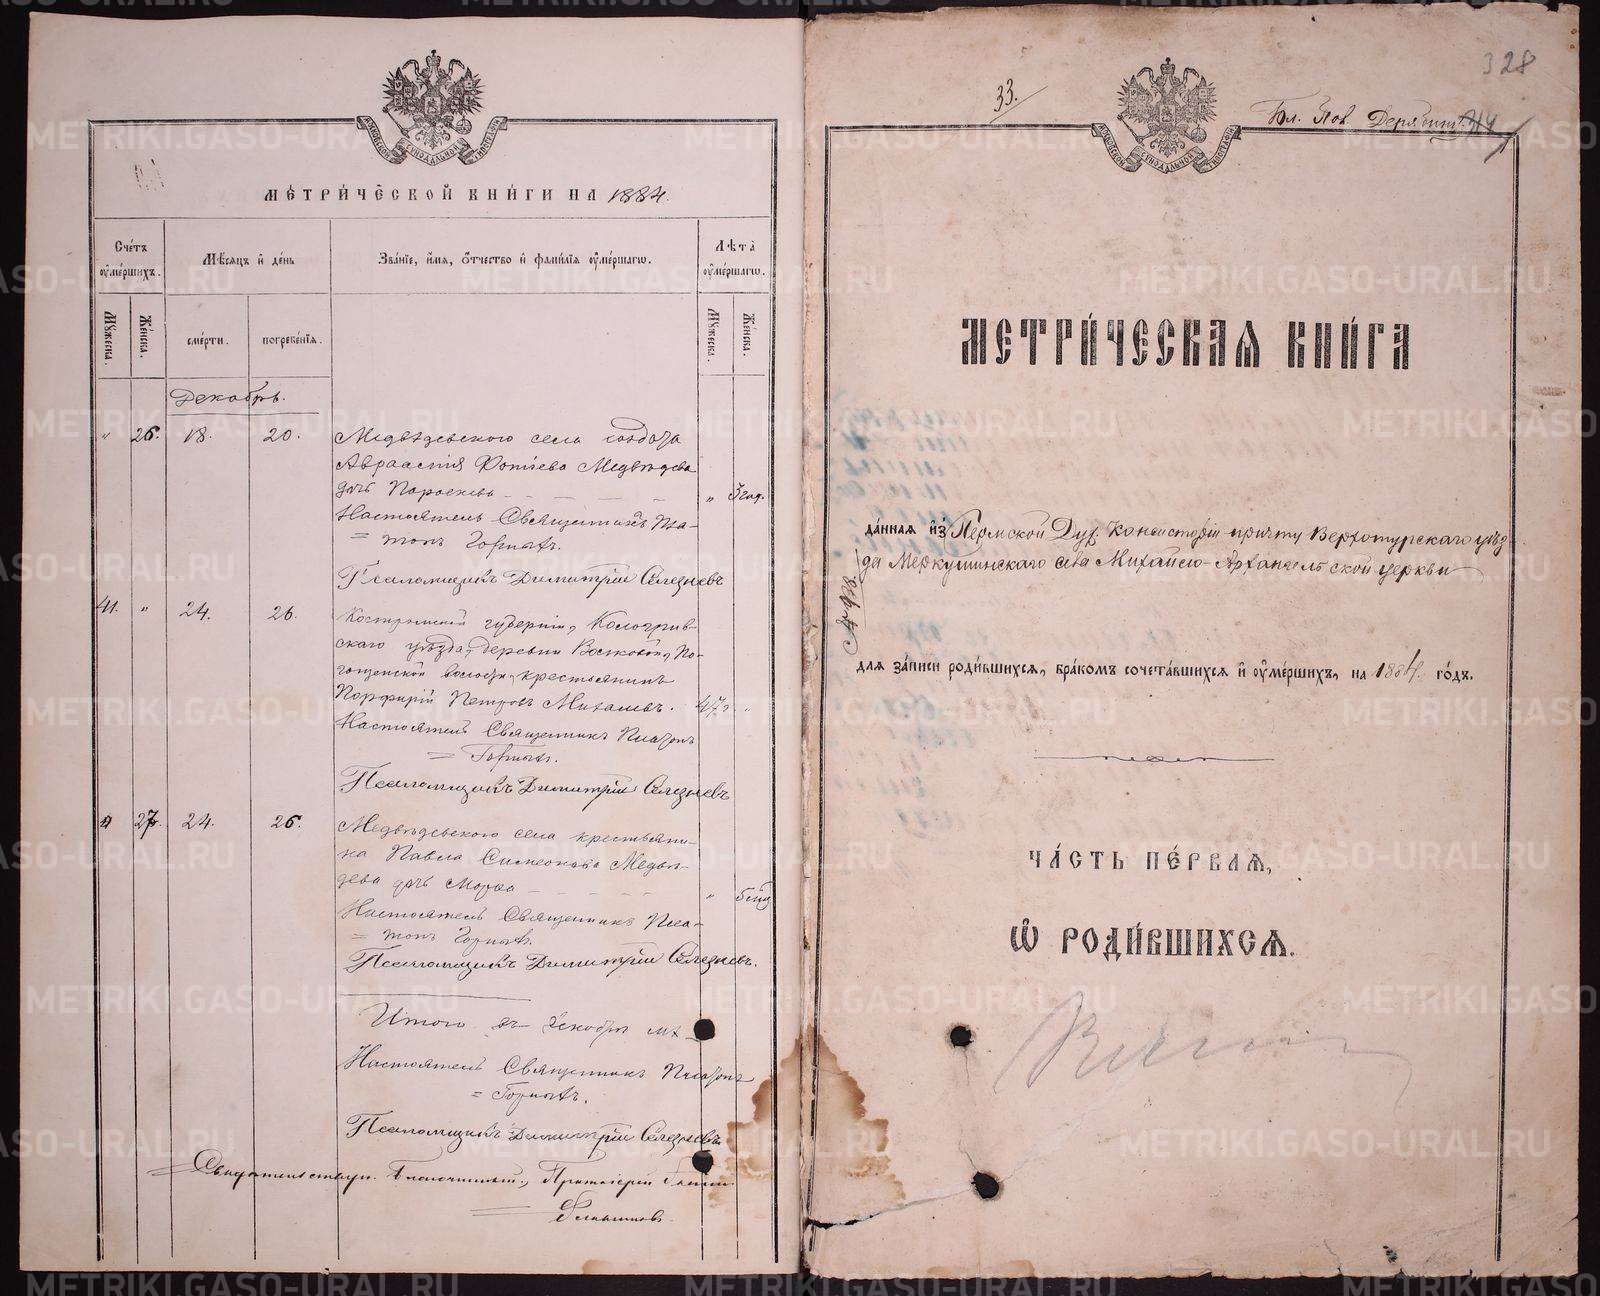 МОСКОВСКОЙ СѴНОДАЛЬНОЙ ТИПОГРАФІИ
МЕТРИ́ЧЕСКОЙ КНИ́ГИ НА 1884.
Сче́тъ оу҆ме́ршихъ.
Мѣ́сяцъ и҆ де́нь
Зва́нїе, и҆́мя, ѻ҆́тчество и҆ фами́лїя оу҆ме́ршагѡ.
Лѣ́та оу҆ме́ршагѡ.
Му́жеска.
Же́нска.
сме́рти.
погребе́нїя.
Му́жеска.
Же́нска.
Декабрь.
" 26. 18. 20. Медвѣдевскаго села солдата
Авраамія Фотіева Медвѣдева
дочь Параскева " 3 год.
Настоятель Священникъ Пла-
= тонъ Горныхъ.
Псаломщикъ Димитрій Селезневъ
41. " 24. 26. Костромской губерніи, Кологрив-
скаго уѣзда, деревни
волости, крестьянинъ
Порфирій Петровъ Михалевъ. 47 г. "
Настоятель Священникъ Платонъ
= Горныхъ.
Псаломщикъ Димитрій Селезневъ
" 27. 24. 26. Медвѣдевскаго села крестьяни-
на Павла Симеонова Медвѣ-
дева дочь Марѳа "
Настоятель Священникъ Пла-
= тонъ Горныхъ.
Псаломщикъ Димитрій Селезневъ.
Итого въ декабрѣ м.
Настоятель Священникъ Платонъ
= Горныхъ.
Псаломщикъ Димитрій Селезневъ
Свидѣтельствую. Благочинный, Протоіерей
328
33.
Бл. Дерябин
МОСКОВСКОЙ СѴНОДАЛЬНОЙ ТИПОГРАФІИ
МЕТРИ́ЧЕСКАЯ КНИ́ГА
да́нная и҆з̾ Пермской Дух. Консисторіи причту Верхотурскаго уѣз-
да Меркушинскаго села Михаило-Архангельской церкви
для за́писи роди́вшихся, бра́комъ сочета́вшихся и҆ оу҆ме́ршихъ, на 1884. го́дъ.
ЧА́СТЬ ПЕ́РВАЯ,
Ѡ҆ РОДИ́ВШИХСЯ.
METRIKI.GASO-URAL.RU